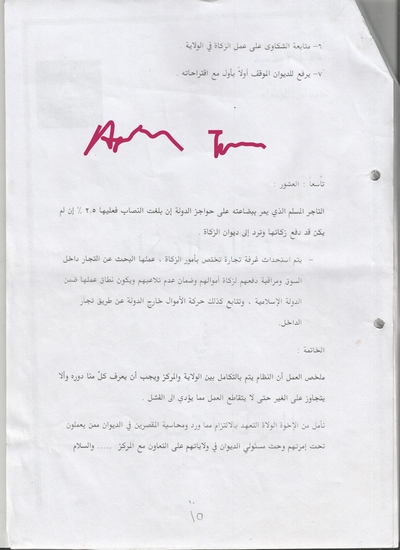 ٦- متابعة الشكاوى على عمل الزكاة في الولاية
٧- يرفع للديوان الموقف أولاً بأول مع اقتراحاته .
تاسعاً : العشور :
التاجر المسلم الذي يمر ببضاعته على حواجز الدولة إن بلغت النصاب فعليها ٢.٥ ٪ إن لم
يكن قد دفع زكاتها وترد إلى ديوان الزكاة .
- يتم استحداث غرفة تجارة تختص بأمور الزكاة ، عملها البحث عن التجار داخل
السوق ومراقبة دفعهم لزكاة أموالهم وضمان عدم تلاعبهم ويكون نطاق عملها ضمن
الدولة الإسلامية ، وتتابع كذلك حركة الأموال خارج الدولة عن طريق تجار
الداخل.
الخاتمة :
ملخص العمل أن النظام يتم بالتكامل بين الولاية والمركز ويجب أن يعرف كلٌ منا دوره وألا
يتجاوز على الغير حتى لا يتقاطع العمل مما يؤدي الى الفشل .
نأمل من الإخوة الولاة التعهد بالالتزام مما ورد ومحاسبة المقصرين في الديوان ممن يعملون
تحت إمرتهم وحث مسئولي الديوان في ولاياتهم على التعاون مع المركز ..... والسلام
١٠
١٥